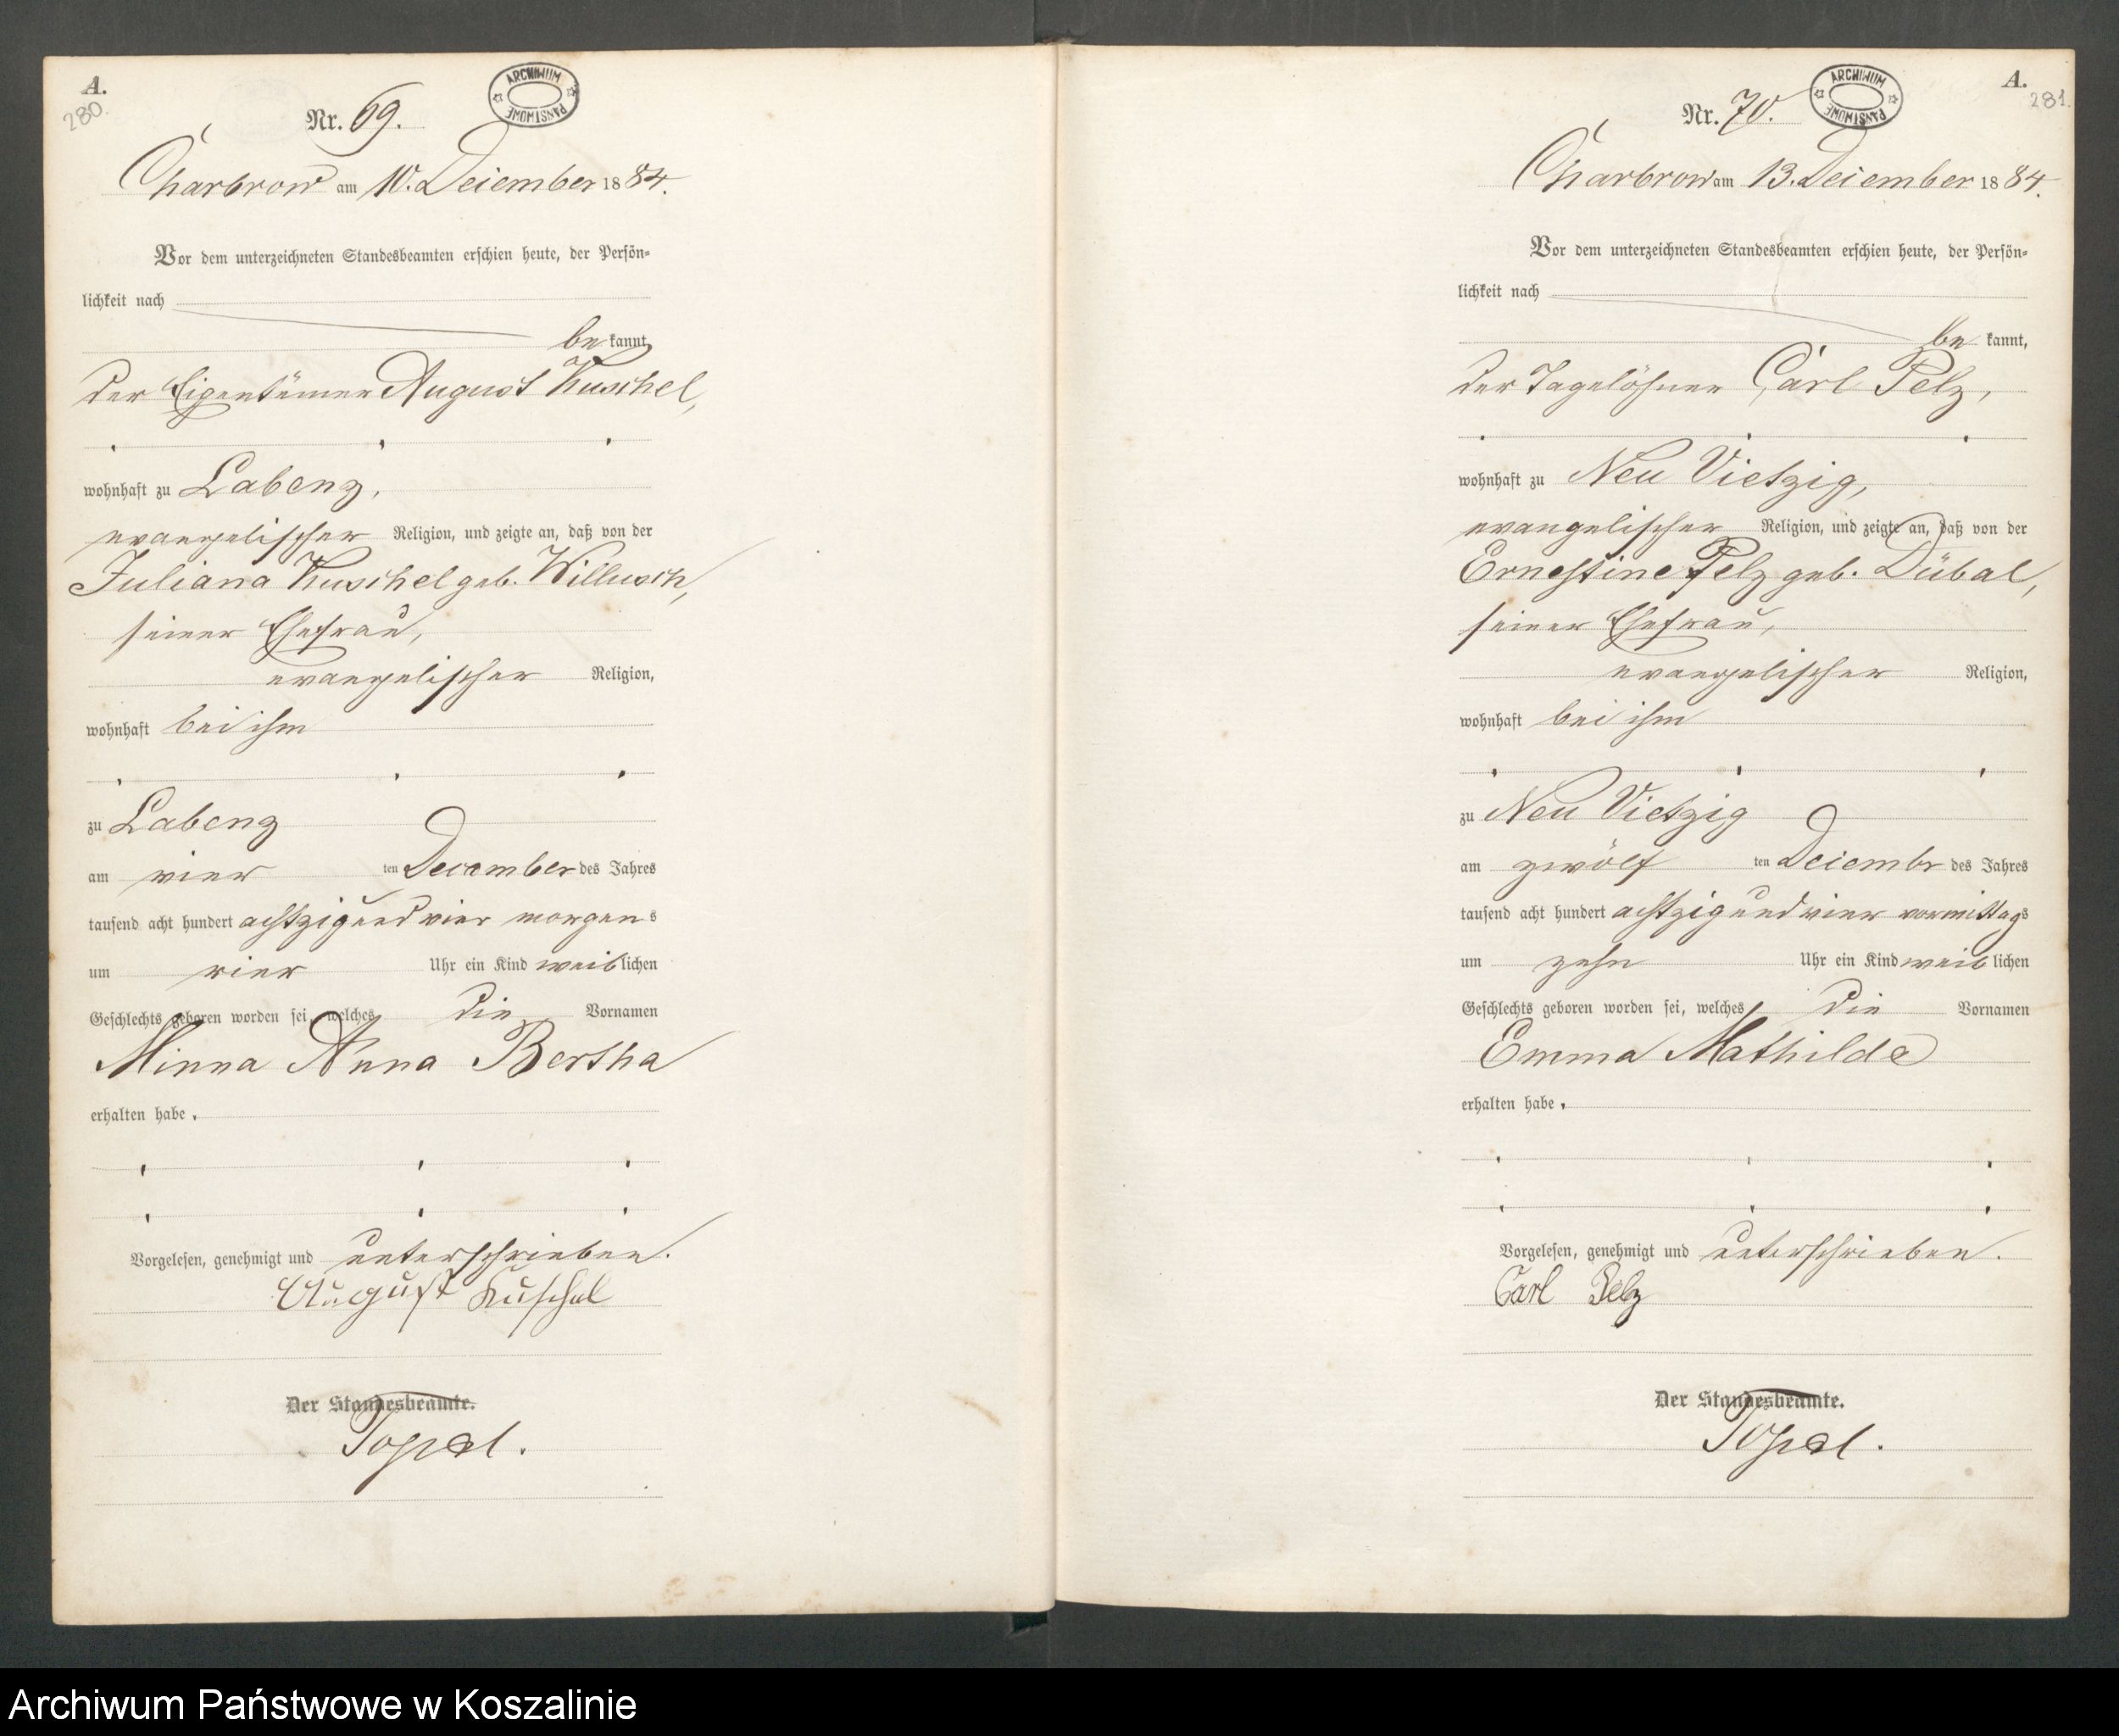 A.
280.
Nr. 69.
ARCHIWUM PAŃSTWOWE
Charbrow am 10. Dezember 1884.
Vor dem unterzeichneten Standesbeamten erschien heute, der Persön-
lichkeit nach
bekannt,
der Eigentümer August Kuschel,
wohnhaft zu Labenz,
evangelischer Religion, und zeigte an, daß von der
Juliana Kuschel geb. Willusch,
seiner Ehefrau,
evangelischer Religion,
wohnhaft bei ihm
zu Labenz
am vier ten December des Jahres
tausend acht hundert achtzig und vier morgens
um vier Uhr ein Kind weiblichen
Geschlechts geboren worden sei, welches die Vornamen
Minna Anna Bertha
erhalten habe.
Vorgelesen, genehmigt und unterschrieben.
August Kuschel
Der Standesbeamte.
Topel.
A.
281.
Nr. 70.
ARCHIWUM PAŃSTWOWE
Charbrow am 13. Dezember 1884.
Vor dem unterzeichneten Standesbeamten erschien heute, der Persön-
lichkeit nach
bekannt,
der Tagelöhner Carl Pelz,
wohnhaft zu Neu Vietzig,
evangelischer Religion, und zeigte an, daß von der
Ernestine Pelz geb. Dübal,
seiner Ehefrau,
evangelischer Religion,
wohnhaft bei ihm
zu Neu Vietzig
am zwölf ten Dezembr des Jahres
tausend acht hundert achtzig und vier vormittags
um zehn Uhr ein Kind weiblichen
Geschlechts geboren worden sei, welches die Vornamen
Emma Mathilde
erhalten habe.
Vorgelesen, genehmigt und unterschrieben.
Carl Pelz
Der Standesbeamte.
Topel.
Archiwum Państwowe w Koszalinie